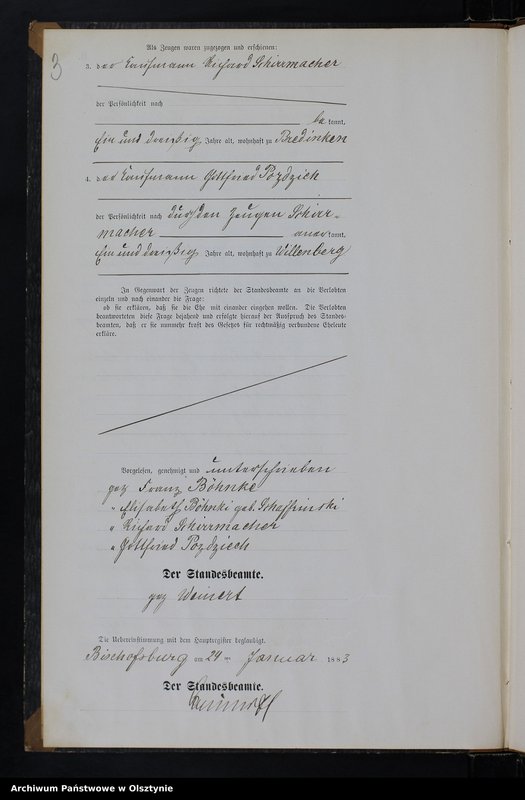 3
Als Zeugen waren zugezogen und erschienen:
3. der Kaufmann Richard Schirrmacher
der Persönlichkeit nach
be kannt,
ein und dreißig Jahre alt, wohnhaft zu Bredinken
4. der Kaufmann Gottfried Pozdziech
der Persönlichkeit nach durch den Zeugen Schirr-
macher anerkannt,
ein und dreißig Jahre alt, wohnhaft zu Willenberg
In Gegenwart der Zeugen richtete der Standesbeamte an die Verlobten
einzeln und nach einander die Frage:
ob sie erklären, daß sie die Ehe mit einander eingehen wollen. Die Verlobten
beantworteten diese Frage bejahend und erfolgte hierauf der Ausspruch des Standes-
beamten, daß er sie nunmehr kraft des Gesetzes für rechtmäßig verbundene Eheleute
erkläre.
Vorgelesen, genehmigt und unterschrieben
gez Franz Böhnke
" Elisabeth Böhnki geb.
" Richard Schirrmacher
" Gottfried Pozdziech
Der Standesbeamte.
gez Weinert
Die Uebereinstimmung mit dem Hauptregister beglaubigt.
Bischofsburg am 24 ten Januar 1883
Der Standesbeamte.
Archiwum Państwowe w Olsztynie